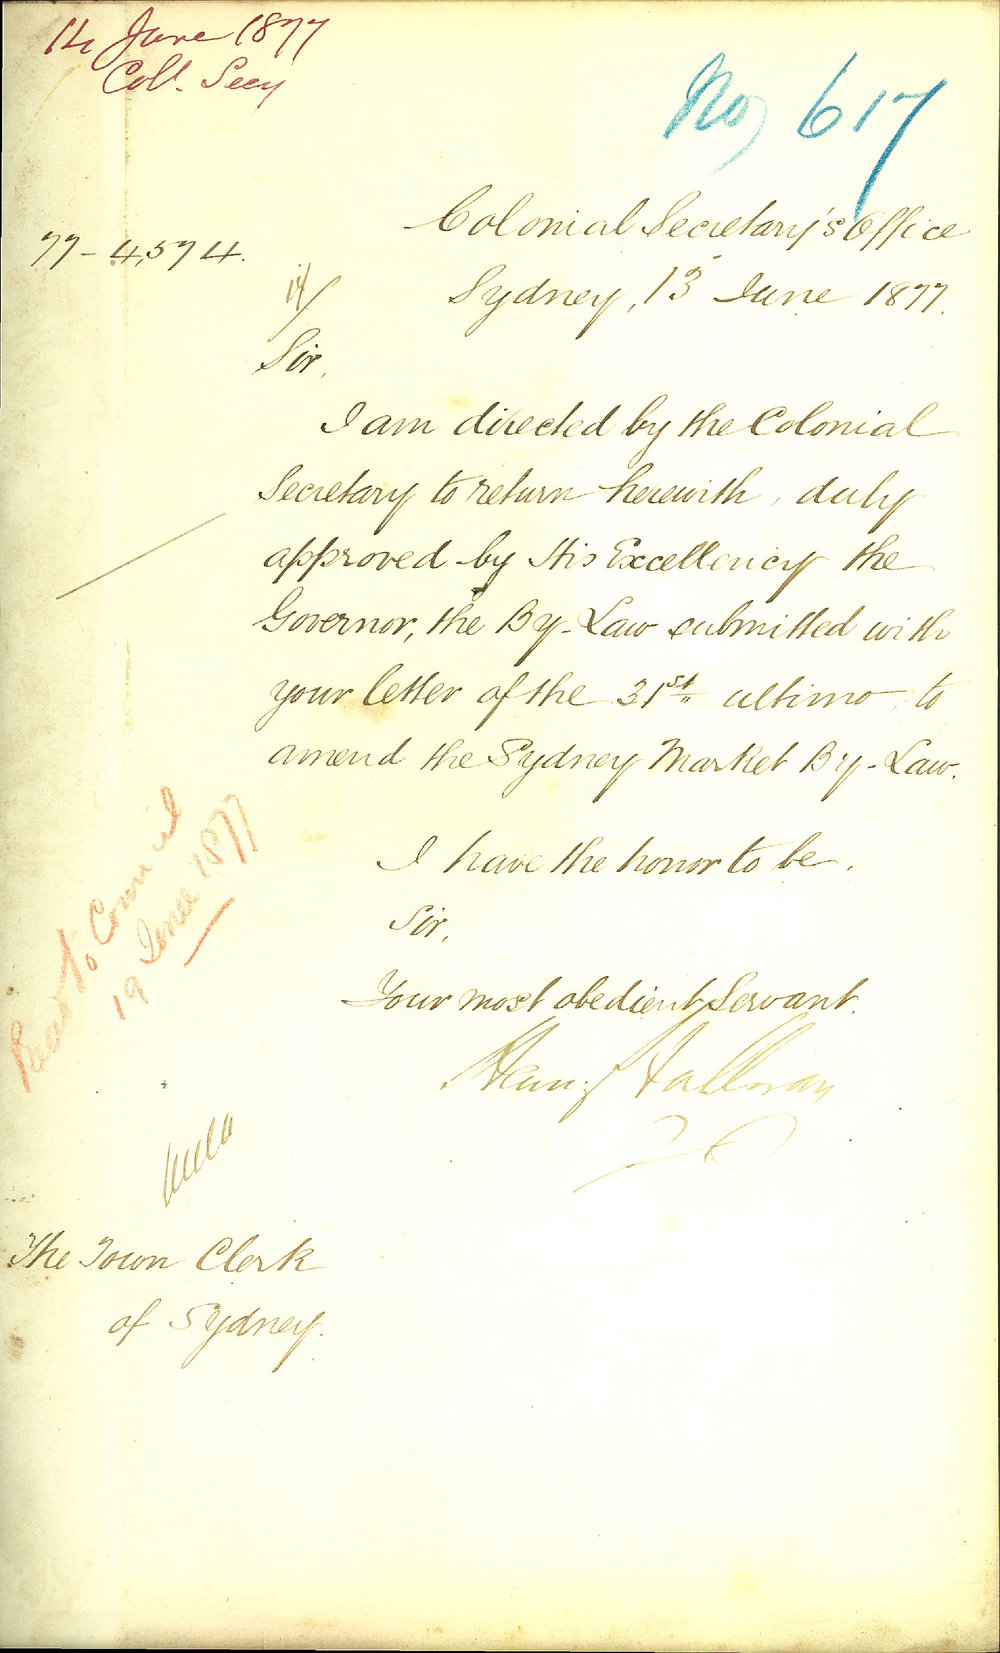 14 June 1877
Col. Secy
No, 617
Colonial Secretary's Office
77-4,574.
Sydney, 13 June 1877.
Sir,
I am directed by the Colonial
Secretary to return herewith, duly
approved by His Excellency the
Governor, the By-Law submitted with
your letter of the 31st ultimo, to
amend the Sydney Market By-Law.
I have the honor to be,
Sir,
Your most obedient Servant.
Henry Halloran
to Council
19 June 1877
The Town Clerk
of Sydney.